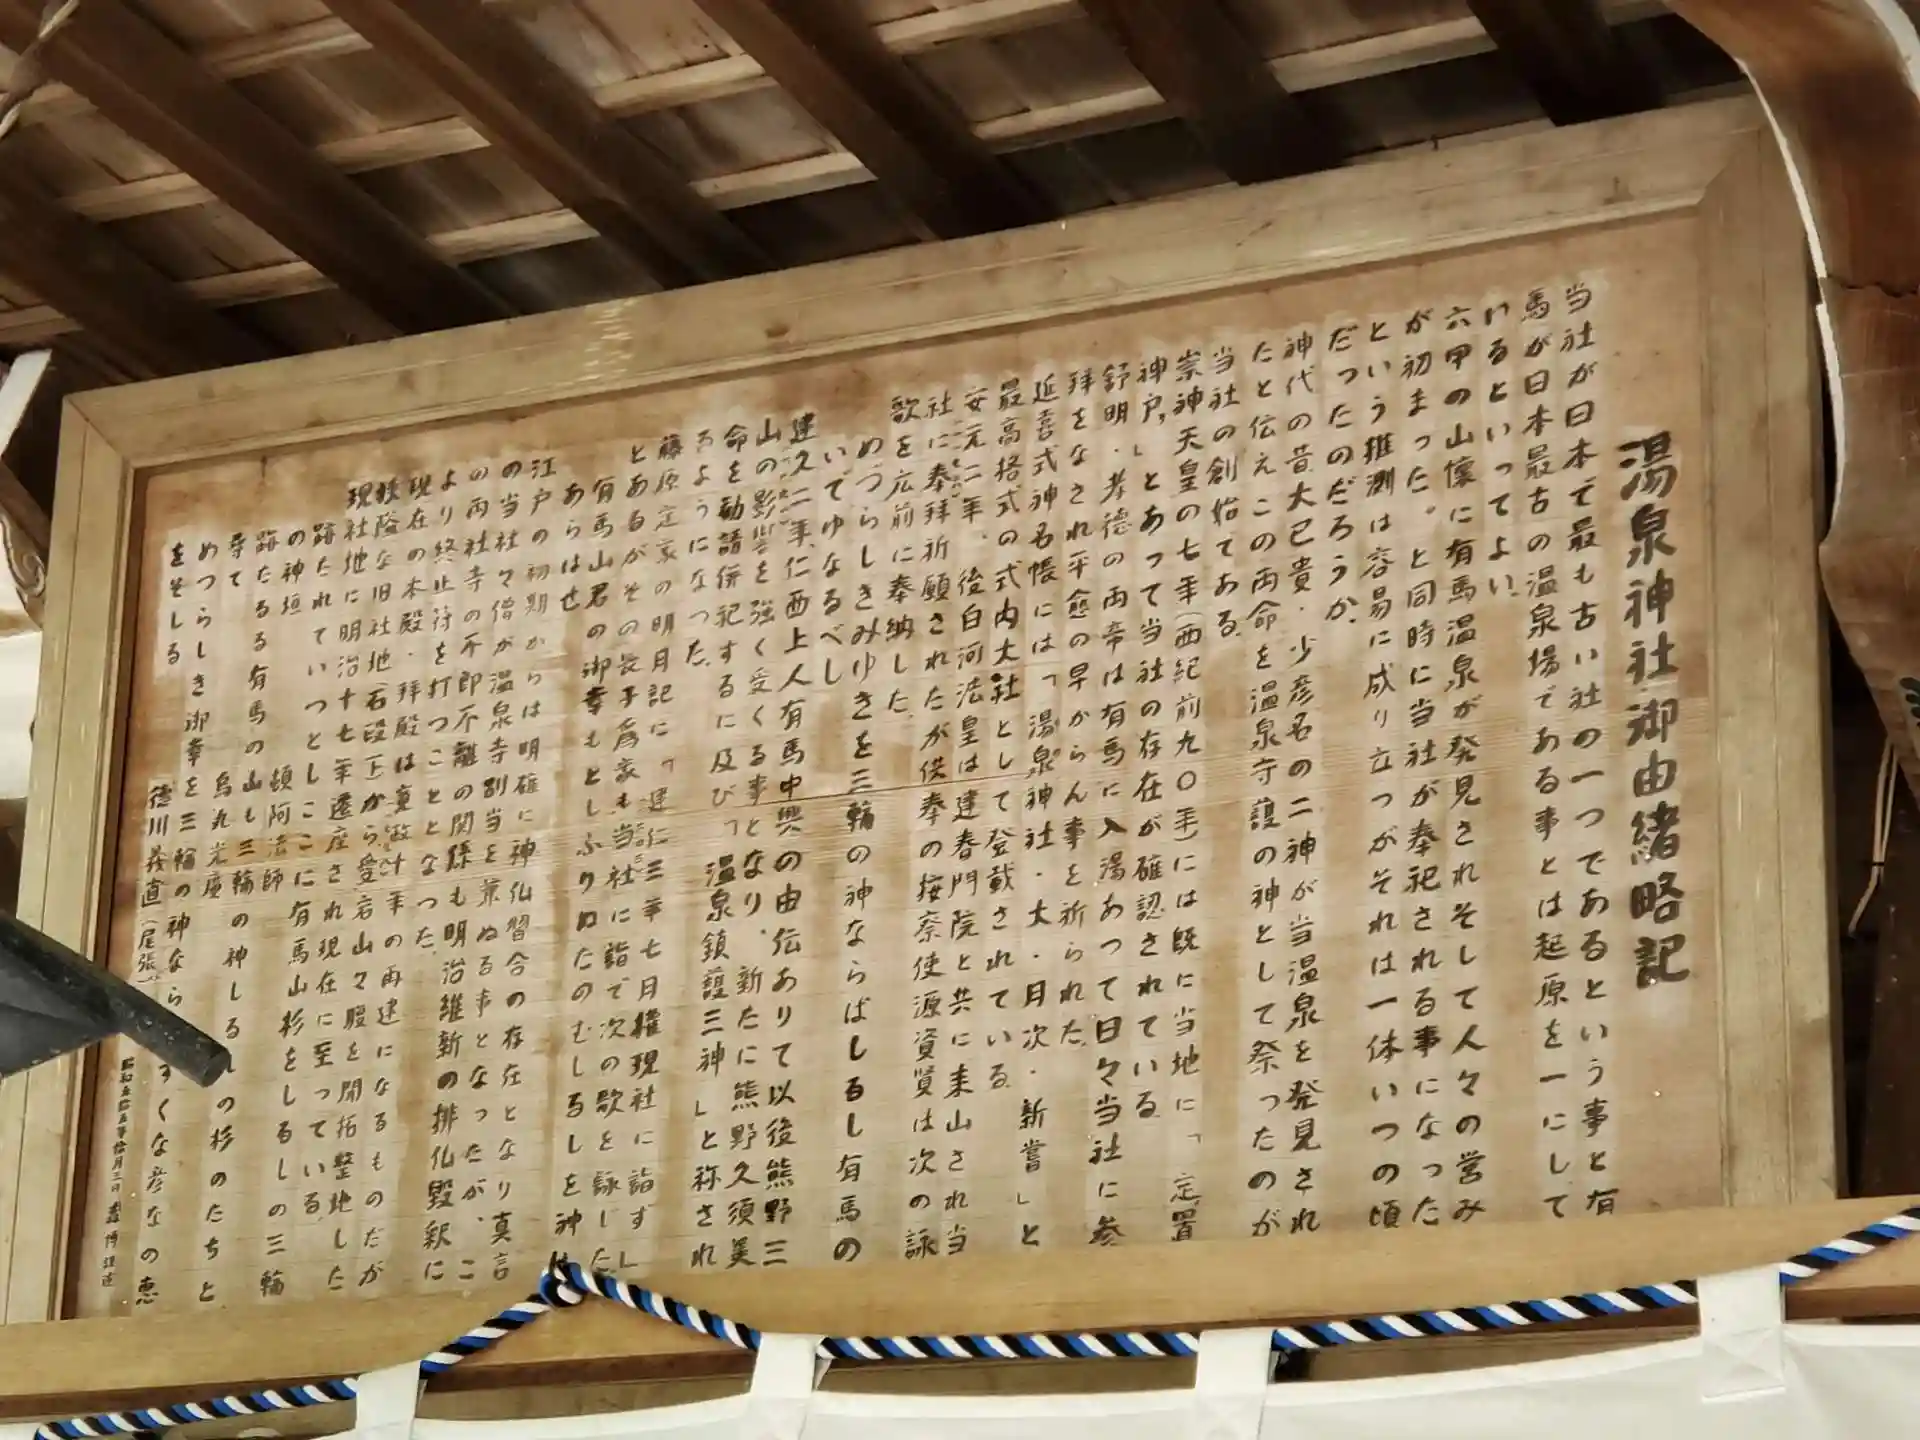 湯泉神社御由緒略記
当社が日本で最も古い社の一つであるという事と有
馬が日本最古の温泉場である事とは起原を一にして
いるといってよい
六甲の山懐に有馬温泉が発見されそして人々の営み
が初まった。と同時に当社が奉祀される事になった
という推測は容易に成り立つがそれは一体いつの頃
だったのだろうか、
神代の昔大己貴・少彦名の二神が当温泉を発見され
たと伝えこの両命を温泉守護の神として祭ったのが
当社の創始である
崇神天皇の七年(西紀前九〇年)には既に当地に「定置
神戸」とあって当社の存在が確認されている
舒明・孝徳の両帝は有馬に入湯あって日々当社に参
拝をなされ平癒の早からん事を祈られた
延喜式神名帳には「湯泉神社・大・月次・新嘗」と
最高格式の式内大社として登載されている
安元二年、後白河法皇は建春門院と共に来山され当
社に奉拝祈願されたが供奉の按察使源資賢は次の詠
歌を広前に奉納した
めづらしきみゆきを三輪の神ならばしるし有馬の
いでゆなるべし
建久二年、仁西上人有馬中興の由伝ありて以後熊野三
山の影響を強く受くる事となり、新たに熊野久須美
命を勧請併祀するに及び「温泉鎮護三神」と称され
るようになった
藤原定家の明月記に「建仁三年七月権現社に詣ず」
とあるがその長子為家も当社に詣で次の歌を詠じた
有馬山君の御幸もとしふりぬたのむしるしを神は
あらはせ
江戸の初期からは明確に神仏習合の存在となり真言
の当社々僧が温泉寺別当を兼ぬる事となったが、こ
の両社寺の不即不離の関係も明治維新の排仏毀釈に
より終止符を打つこととなった
現在の本殿・拝殿は年の再建になるものだが
険な旧社地(石段上から受岩山々服を開拓整地した
現社地に明治十七年遷座され現在に至っている
跡たれていつとしここに有馬山杉をしるしの三輪
の神垣 頓阿法師
跡たるる有馬の山も三輪の神しるしの杉のたちと
寺て 烏丸光廣
めつらしき御幸を三輪の神ならすくな彦なの恵
をそしる 徳川義直(尾張
昭和五拾五年拾月三日